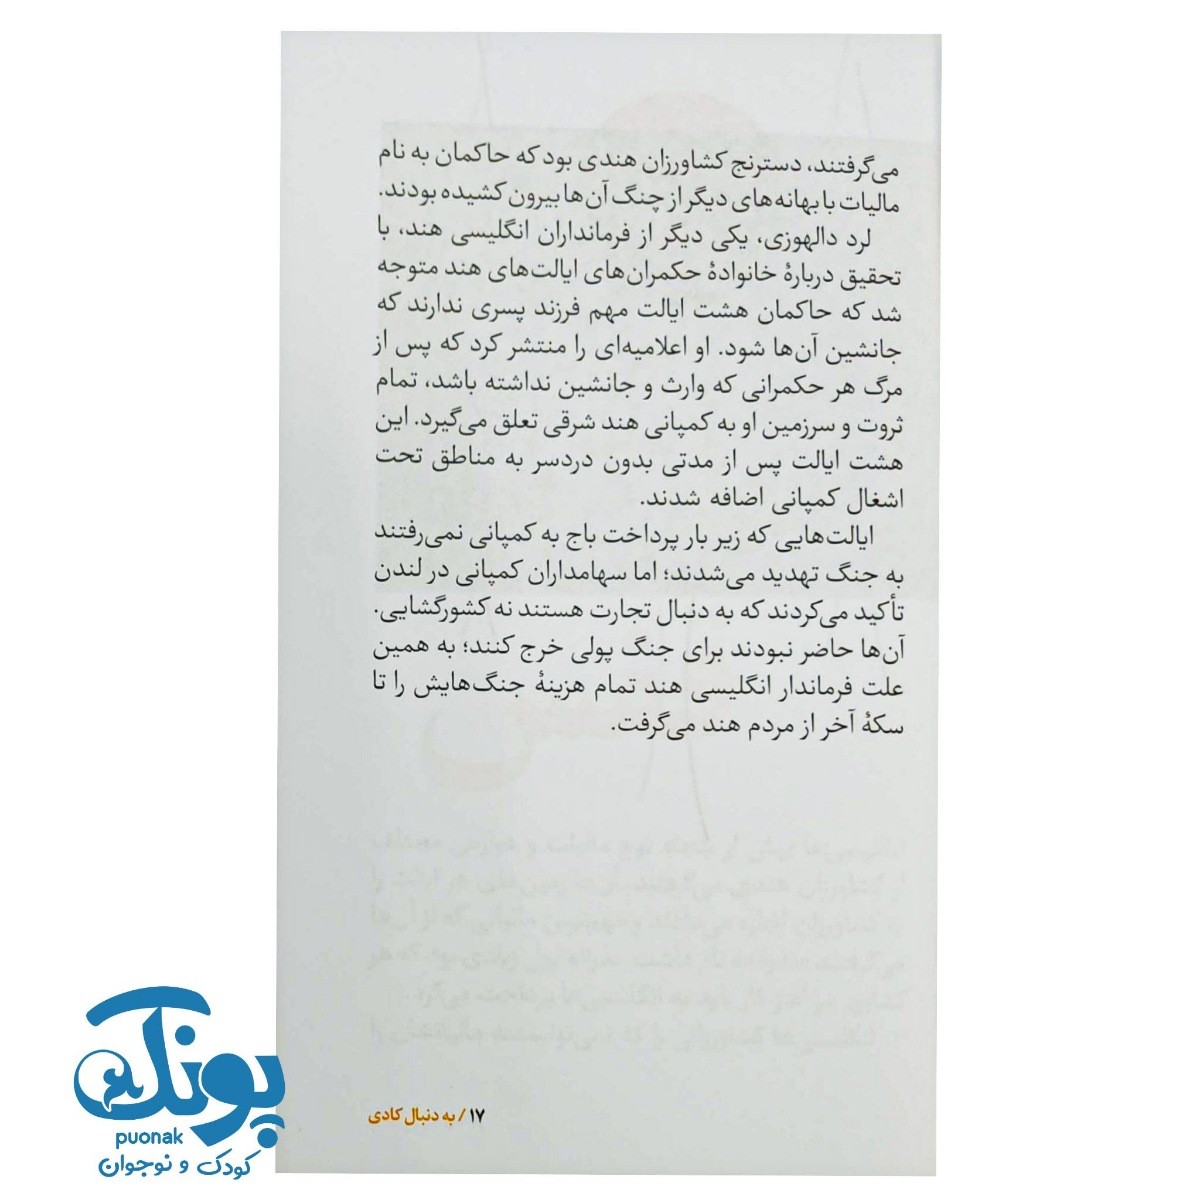 می‌گرفتند، دسترنج کشاورزان هندی بود که حاکمان به نام
مالیات با بهانه‌های دیگر از چنگ آن‌ها بیرون کشیده بودند.
لرد دالهوزی، یکی دیگر از فرمانداران انگلیسی هند، با
تحقیق دربارهٔ خانوادهٔ حکمران‌های ایالت‌های هند متوجه
شد که حاکمان هشت ایالت مهم فرزند پسری ندارند که
جانشین آن‌ها شود. او اعلامیه‌ای را منتشر کرد که پس از
مرگ هر حکمرانی که وارث و جانشین نداشته باشد، تمام
ثروت و سرزمین او به کمپانی هند شرقی تعلق می‌گیرد. این
هشت ایالت پس از مدتی بدون دردسر به مناطق تحت
اشغال کمپانی اضافه شدند.
ایالت‌هایی که زیر بار پرداخت باج به کمپانی نمی‌رفتند
به جنگ تهدید می‌شدند؛ اما سهامداران کمپانی در لندن
تأکید می‌کردند که به دنبال تجارت هستند نه کشورگشایی.
آن‌ها حاضر نبودند برای جنگ پولی خرج کنند؛ به همین
علت فرماندار انگلیسی هند تمام هزینهٔ جنگ‌هایش را تا
سکهٔ آخر از مردم هند می‌گرفت.
۱۷ / به دنبال کادی
پونک
puonak
کودک و نوجوان